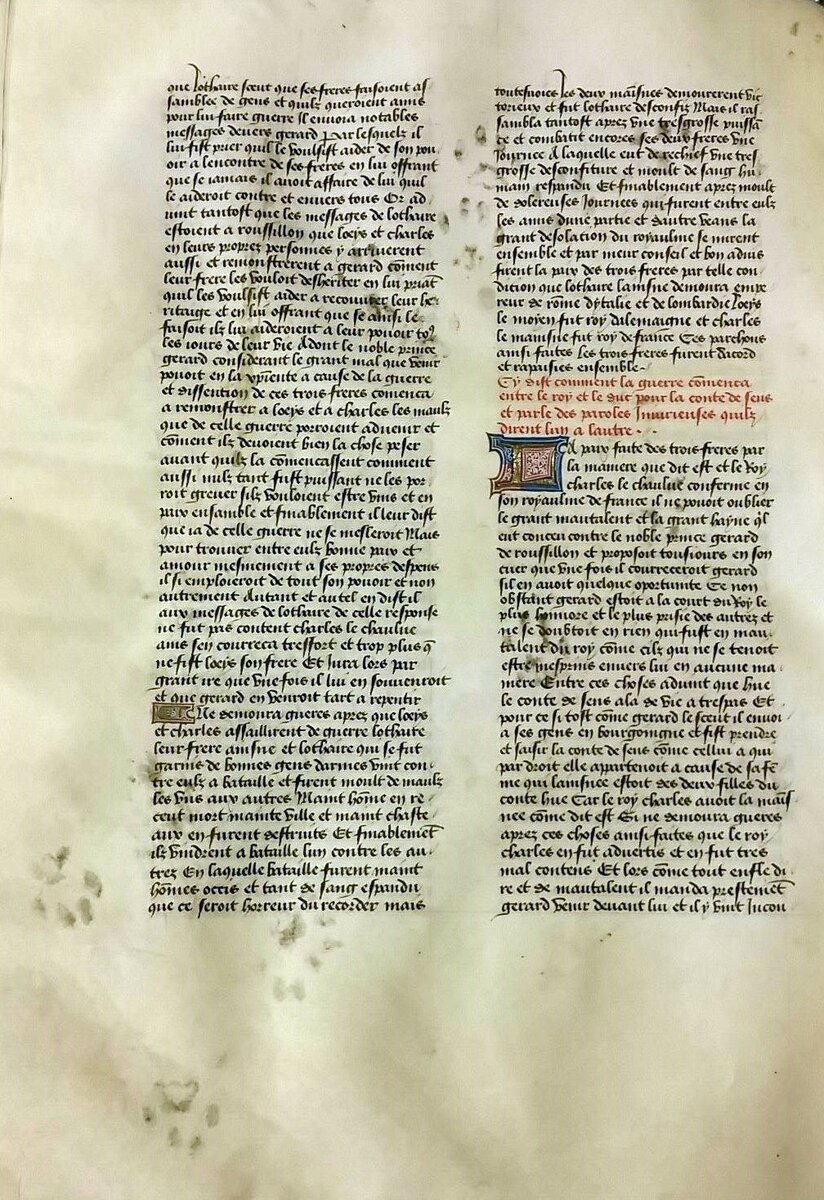 que Lothaire sceut que ses freres faisoient as
samblee de gens et quilz queroient amis
pour lui faire guerre Il envoia notables
messages devers gerard Par lesquelz il
lui fist prier quil le voulsist aider de son pou
oir a lencontre de ses freres en lui offrant
que se iamais il avoit affaire de lui quil
le aideroit contre et envers tous Or ad
vint tantost que les messages de lothaire
estoient a roussillon que loeys et charles
en leurs propres personnes y arriverent
aussi et remonstrerent a gerard cōment
leur frere les vouloit desheriter en lui priāt
quil les voulsist aider a recouvrer leur he
ritaige et en lui offrant que se ainsi le
faisoit ilz lui aideroient a leur povoir to9
les iours de leur vie Adont le noble prince
gerard considerant le grant mal que venir
pouoit en la xp̄iente a cause de la guerre
et dissention de ces trois freres comenca
a remonstrer a loeys et a charles les maulz
que de celle guerre porroient advenir et
cōment ilz devoient bien la chose peser
avant quilz la cōmencassent comment
aussi nulz tant fust puissant ne les por
roit grever silz vouloient estre unis et en
paix ensemble et finablement il leur dist
que ia de celle guerre ne se mesleroit Mais
pour trouver entre eulz bonne paix et
amour mesmement a ses propres despens
il si emploieroit de tout son povoir et non
autrement Autant et autel en dist il
aux messages de lothaire de celle response
ne fut pas content charles le chaulve
ains sen courreca tresfort et trop plus q̄
ne fist loeys son frere Et Iura lors par
grant ire que une fois il lui en souvenroit
et que gerard en venroit tart a repentir
Ne demoura gueres apres que loeys
et charles assaillirent de guerre lothaire
leur frere aisne et lothaire qui se fut
garnis de bonnes gens darmes vint con
tre eulz a bataille et firent moult de maulz
les uns aux autres Maint hōme en re
ceut mort mainte ville et maint chaste
aux en furent destruits Et finablemēt
ilz vindrent a bataille lun contre les au
tres En laquelle bataille furent maint
hōmes occis et tant de sang espandu
que ce seroit horreur du recorder mais
toutesvoies les deux maisnes demourerent vic
torieux et fut lothaire desconfis Mais il ras
sambla tantost apres une tresgrosse puissā
ce et combatit encores ses deux freres une
Journee A laquelle eut de rechief une tres
grosse desconfiture et moult de sang hu
main respandu Et finablement apres moult
de dolereuses Journees qui furent entre eulz
les amis dune partie et dautre veans la
grant desolation du royaulme se mirent
ensemble et par meur conseil et bon advis
firent la paix des trois freres par telle con
dition que lothaire laisne demoura empe
reur de rōme dytalie et de lombardie Loeys
le moyen fut roy dalemaigne et charles
le mainsne fut roy de france Ces parchons
ainsi faites les trois freres furent dacord
et rapaisies ensemble
Cy dist comment la guerre cōmenca
entre le roy et le duc pour la conte de sens
et parle des paroles Iniurieuses quilz
dirent lun a lautre
La paix faite des trois freres par
la maniere que dit est et le Roy
charles le chaulve conferme en
son royaulme de france il ne povoit oublier
le grant mautalent et la grant hayne q̄l
eut conceu contre le noble prince gerard
de roussillon et proposoit tousiours en son
cuer que une fois il courreceroit gerard
sil en avoit quelque oportunite Ce non
obstant gerard estoit a la court du Roy le
plus honnore et le plus prisie des autres et
ne se doubtoit en rien qui fust en mau
talent du roy cōme cilz qui ne se tenoit
estre mesprins envers lui en aucune ma
niere Entre ces choses advint que hue
le conte de sens ala de vie a trespas Et
pour ce si tost cōme gerard le sceut il envoi
a ses gens en bourgoingne et fist prendre
et saisir la conte de sens cōme cellui a qui
par droit elle appartenoit a cause de sa fē
me qui lainsnee estoit des deux filles du
conte hue Car le roy charles avoit la mais
nee cōme dit est Si ne demoura gueres
apres ces choses ainsi faites que le roy
charles en fut advertis et en fut tres
mal contens Et lors cōme tout enfle di
re et de mautalent il manda prestemēt
gerard venir devant lui et il y vint Incon